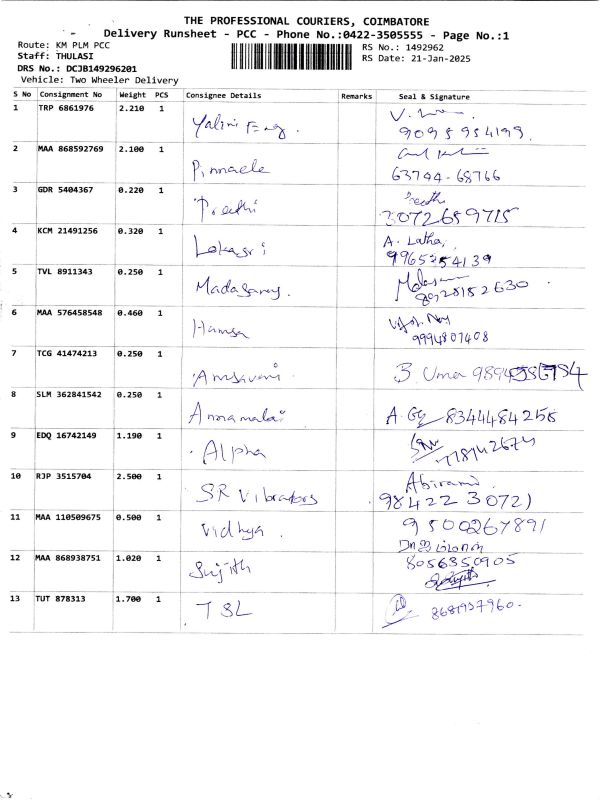 THE PROFESSIONAL COURIERS, COIMBATORE
Delivery Runsheet - PCC - Phone No.:0422-3505555 - Page No.:1
Route: KM PLM PCC
RS No.: 1492962
Staff: THULASI
RS Date: 21-Jan-2025
DRS No.: DCJB149296201
Vehicle: Two Wheeler Delivery
S No Consignment No Weight PCS Consignee Details Remarks Seal & Signature
1 TRP 6861976 2.210 1 Yalini Eng.
2 MAA 868592769 2.100 1 Pinnacle 63744-68766
3 GDR 5404367 0.220 1 Preethi Preethi
3072659715
4 KCM 21491256 0.320 1 Lokasri A. Latha,
9965254139
5 TVL 8911343 0.250 1 Madasamy. 8928152630
6 MAA 576458548 0.460 1 Hamsa
9994807408
7 TCG 41474213 0.250 1 Amsaveni
8 SLM 362841542 0.250 1 Annamalai 8344484258
9 EDQ 16742149 1.190 1 Alpha
10 RJP 3515704 2.500 1 SR Vibrators Abirami
9842230721
11 MAA 110509675 0.500 1 Vidhya. 9500267891
12 MAA 868938751 1.020 1 Sujith 8056350905
13 TUT 878313 1.700 1 TSL 8681937960.